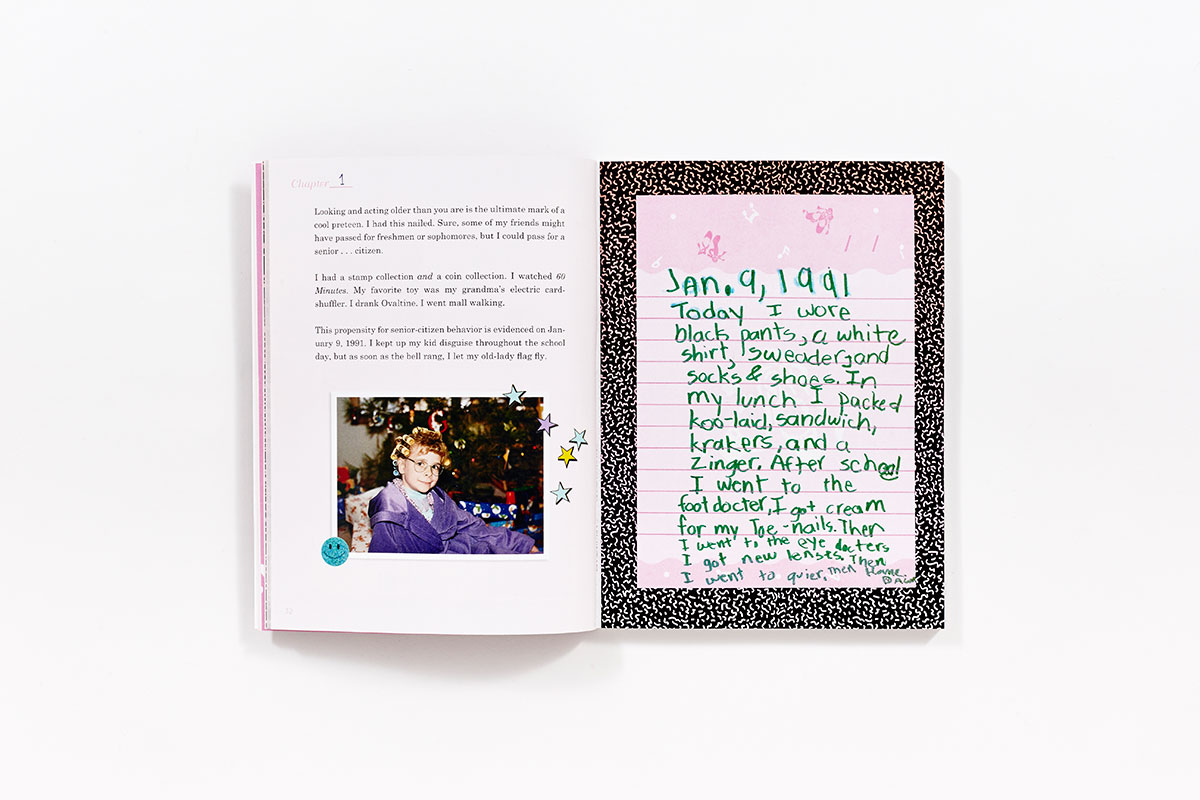 Chapter 1
Looking and acting older than you are is the ultimate mark of a
cool preteen. I had this nailed. Sure, some of my friends might
have passed for freshmen or sophomores, but I could pass for a
senior . . . citizen.
I had a stamp collection and a coin collection. I watched 60
Minutes. My favorite toy was my grandma's electric card-
shuffler. I drank Ovaltine. I went mall walking.
This propensity for senior-citizen behavior is evidenced on Jan-
uary 9, 1991. I kept up my kid disguise throughout the school
day, but as soon as the bell rang, I let my old-lady flag fly.
12
/ /
Jan. 9, 1991
Today I wore
black pants, a white
shirt, sweader, and
socks & shoes. In
my lunch I packed
koo-laid, sandwich,
krakers, and a
Zinger. After school
I went to the
foot docter, I got cream
for my Toe-nails. Then
I went to the eye docters
I got new lenses. Then
I went to quier, then Home.